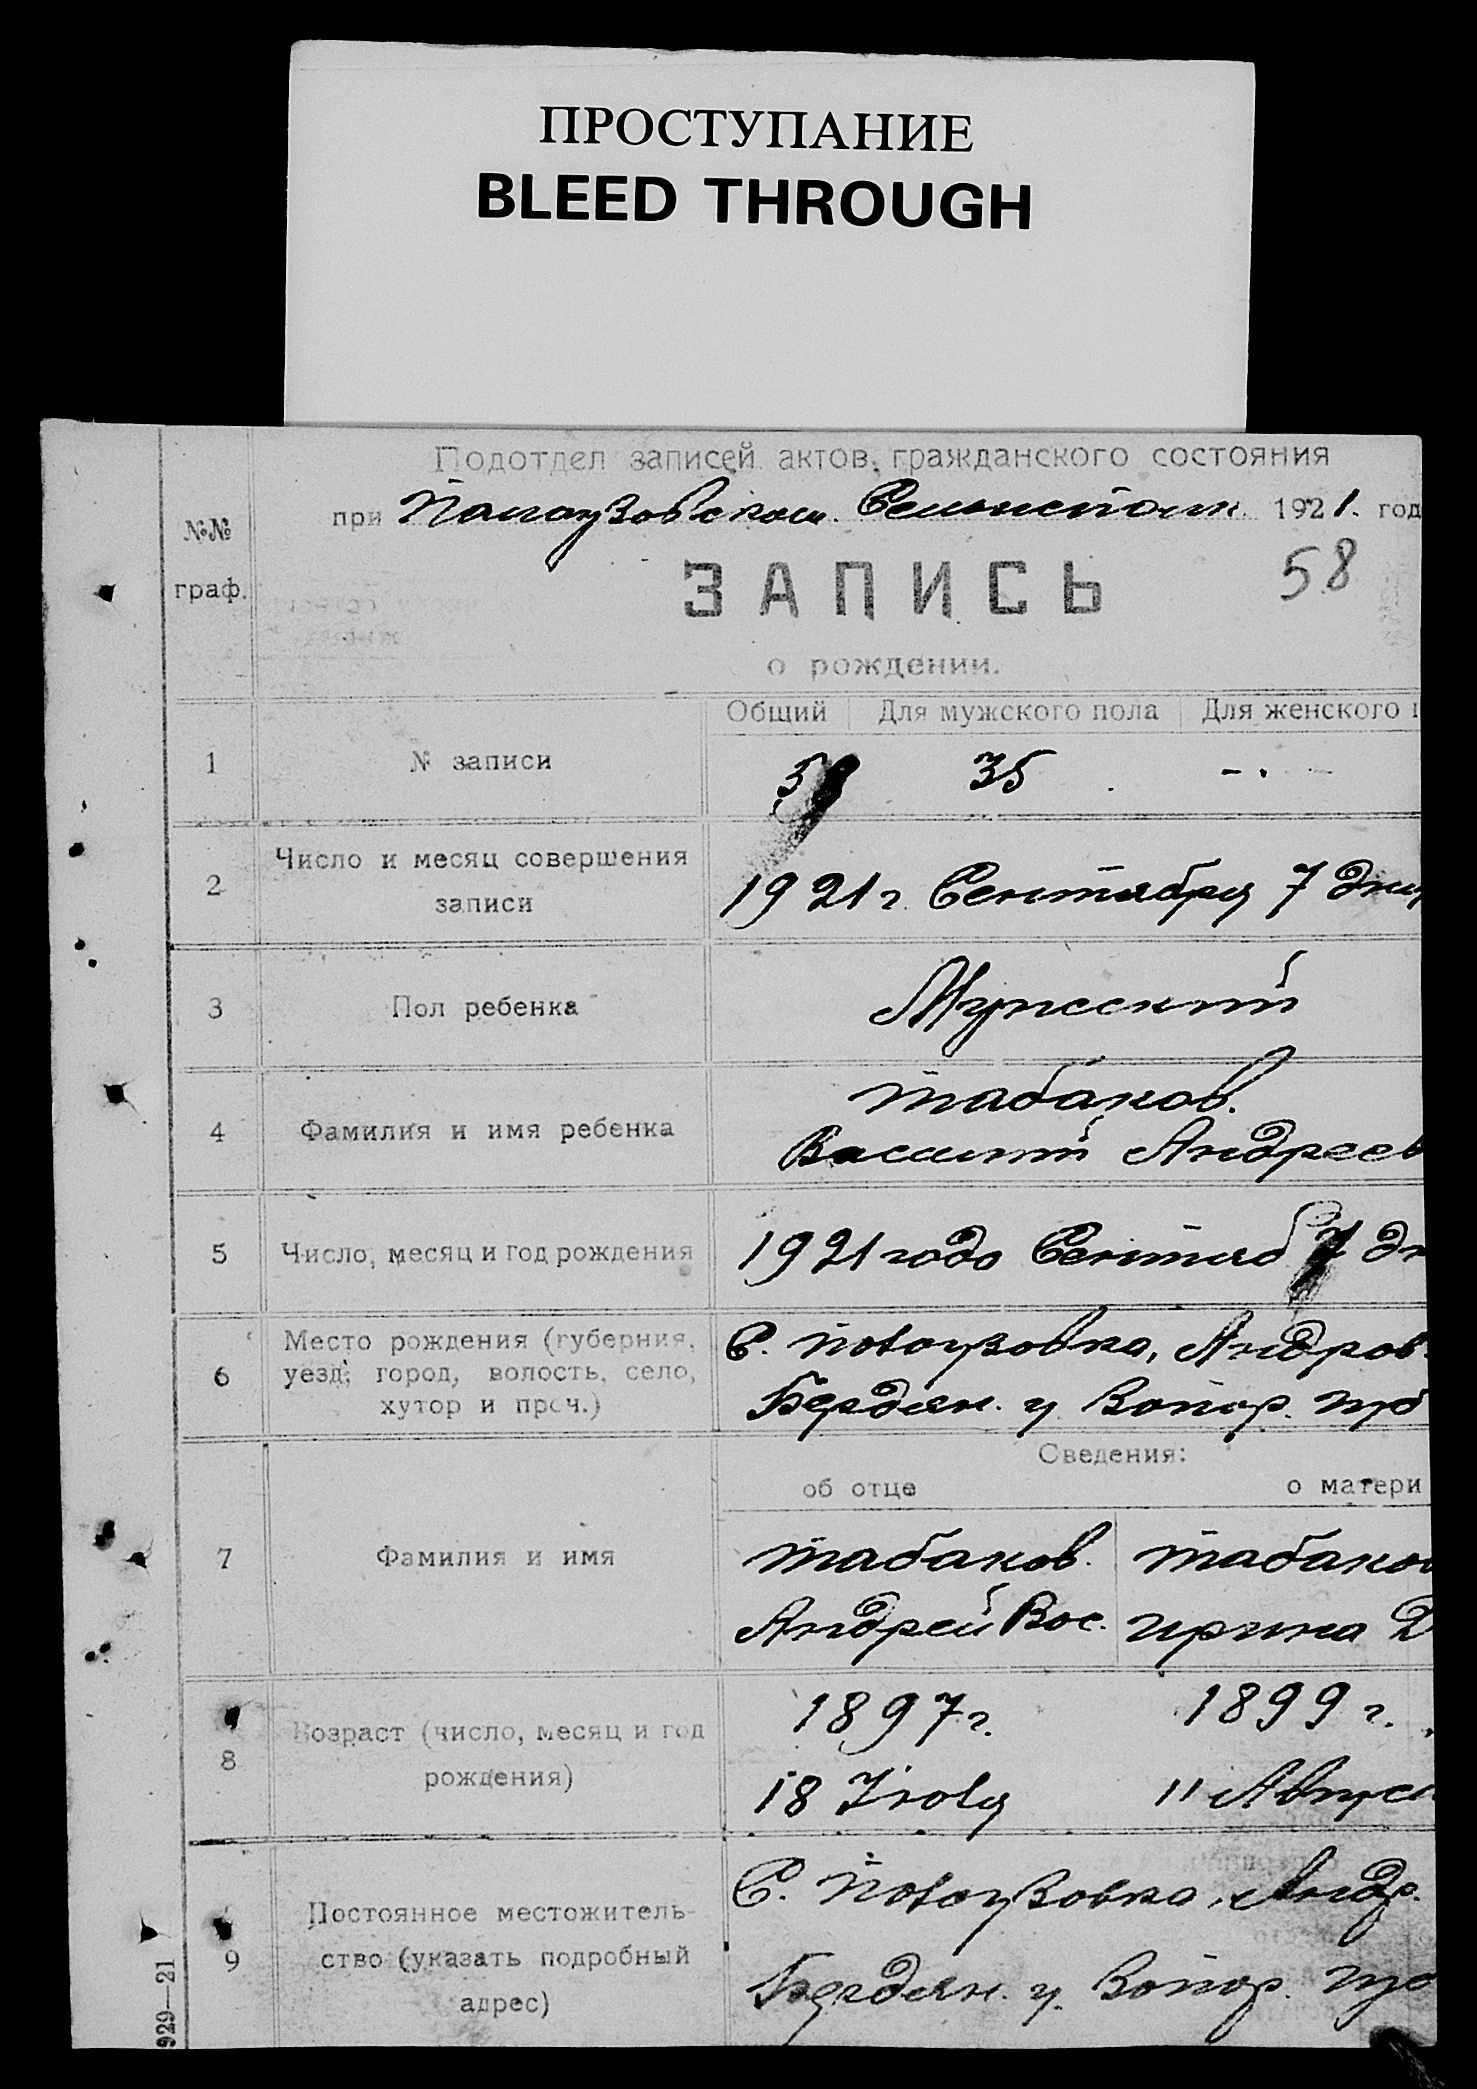 ПРОСТУПАНИЕ
BLEED THROUGH
Подотдел записей актов гражданского состояния
при 1921. год
№№
граф.
ЗАПИСЬ
58
о рождении.
Общий Для мужского пола Для женского п
1 № записи 58 35 - . -
2 Число и месяц совершения
записи
1921 г. Сентября 7 дня
3 Пол ребенка Мужской
4 Фамилия и имя ребенка
Табаков.
Василий Андреев
5 Число, месяц и год рождения 1921 года Сентяб 7 дн
6 Место рождения (губерния,
уезд, город, волость, село,
хутор и проч.)
С. Андров.
Бердян. у. Запор. губ
Сведения:
об отце о матери
7 Фамилия и имя
Табаков. Табаков
Андрей Вас. Ирина Д
8 Возраст (число, месяц и год
рождения)
1897 г. 1899 г.
18 Июля 11 Августа
9 Постоянное местожитель-
ство (указать подробный
адрес)
С. Андр.
Бердян. у. Запор. гу
929—21